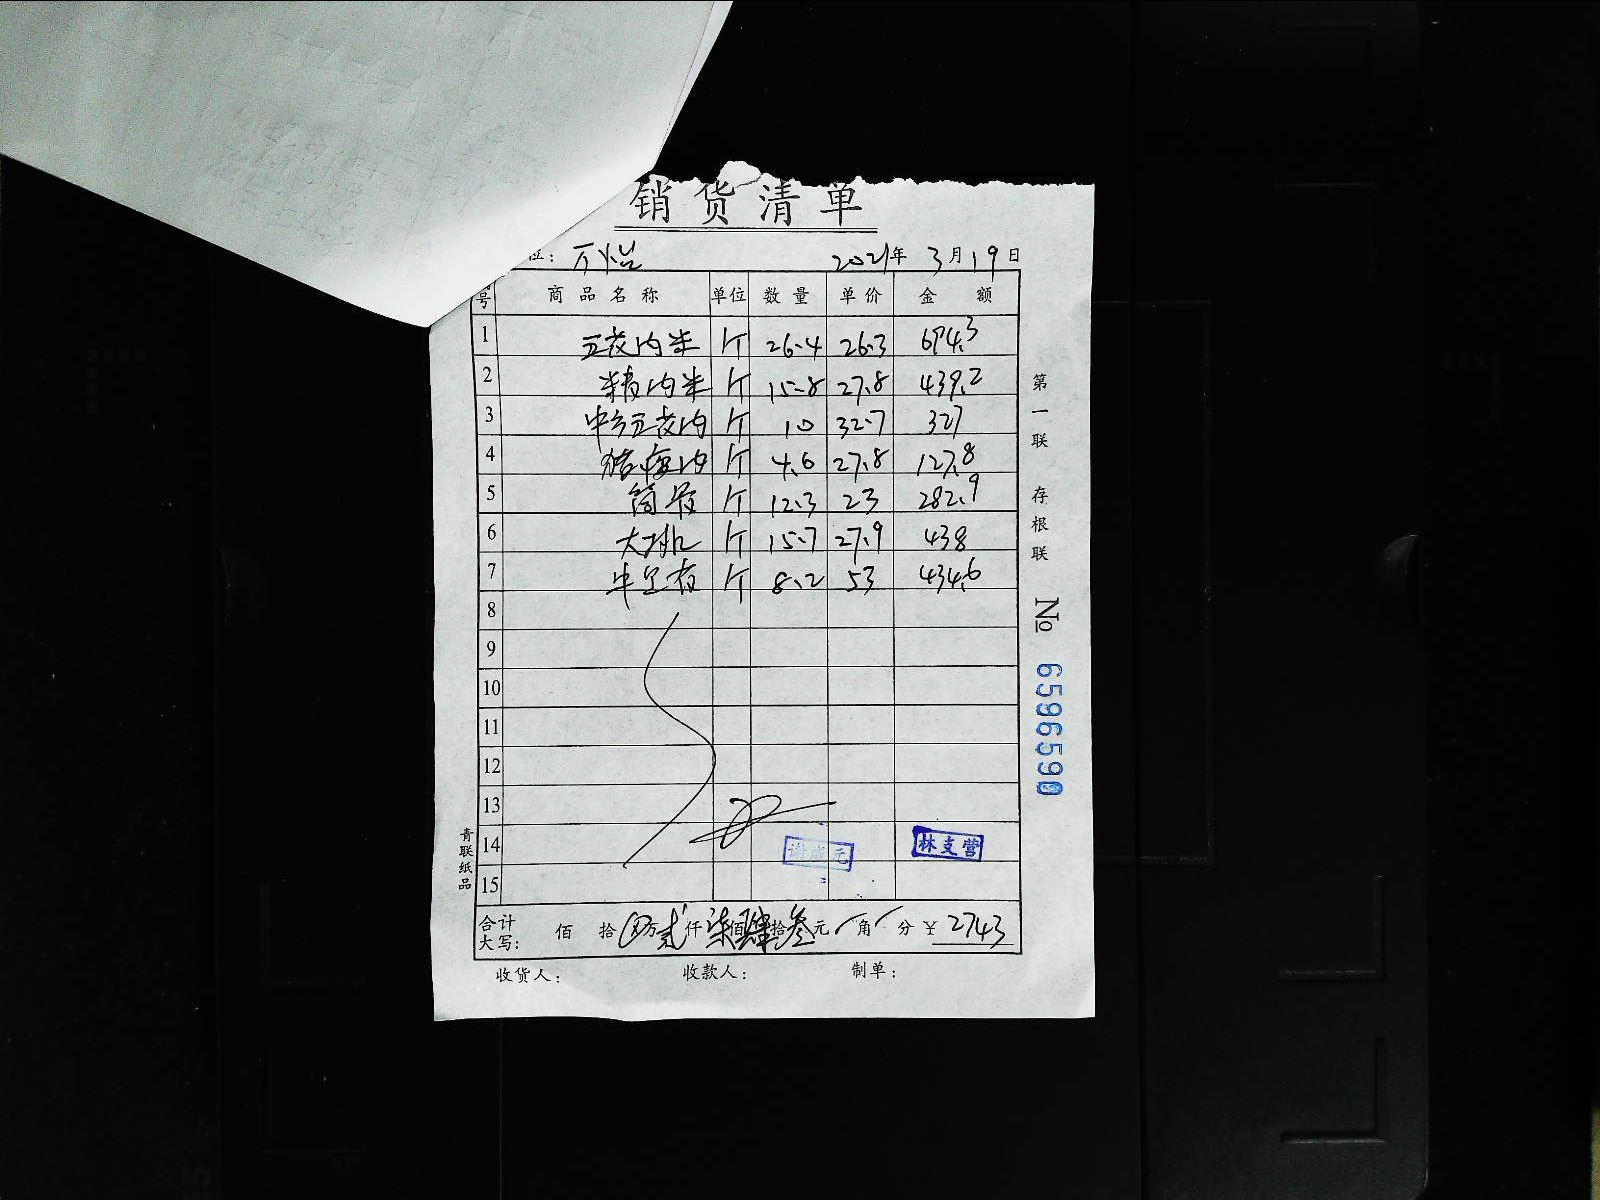 销货清单
位： 万怡 2021年3月19日
号 商品名称 单位 数量 单价 金额
1 五花肉米 斤 26.4 26.3 694.3
2 精肉米 斤 15.8 27.8 439.2
3 中方五花肉 斤 10 32.7 327
4 猪梅肉 斤 4.6 27.8 127.8
5 筒骨 斤 12.3 23 282.9
6 大排 斤 15.7 27.9 438
7 牛 斤 8.2 53 434.6
8
9
10
11
12
13
14 谢成元 林支营
15
合计大写： 佰 拾 万贰仟柒佰肆拾叁元 角 分 ¥ 2743
收货人： 收款人： 制单：
第一联 存根联 № 6596590
青联纸品